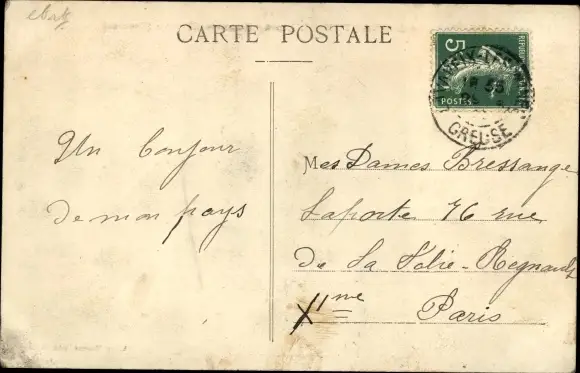 CARTE POSTALE
5
POSTES
CREUSE
Un bonjour
de mon pays
Mes Dames Bressange
Laporte 76 rue
de La Folie-Regnault
XIme Paris